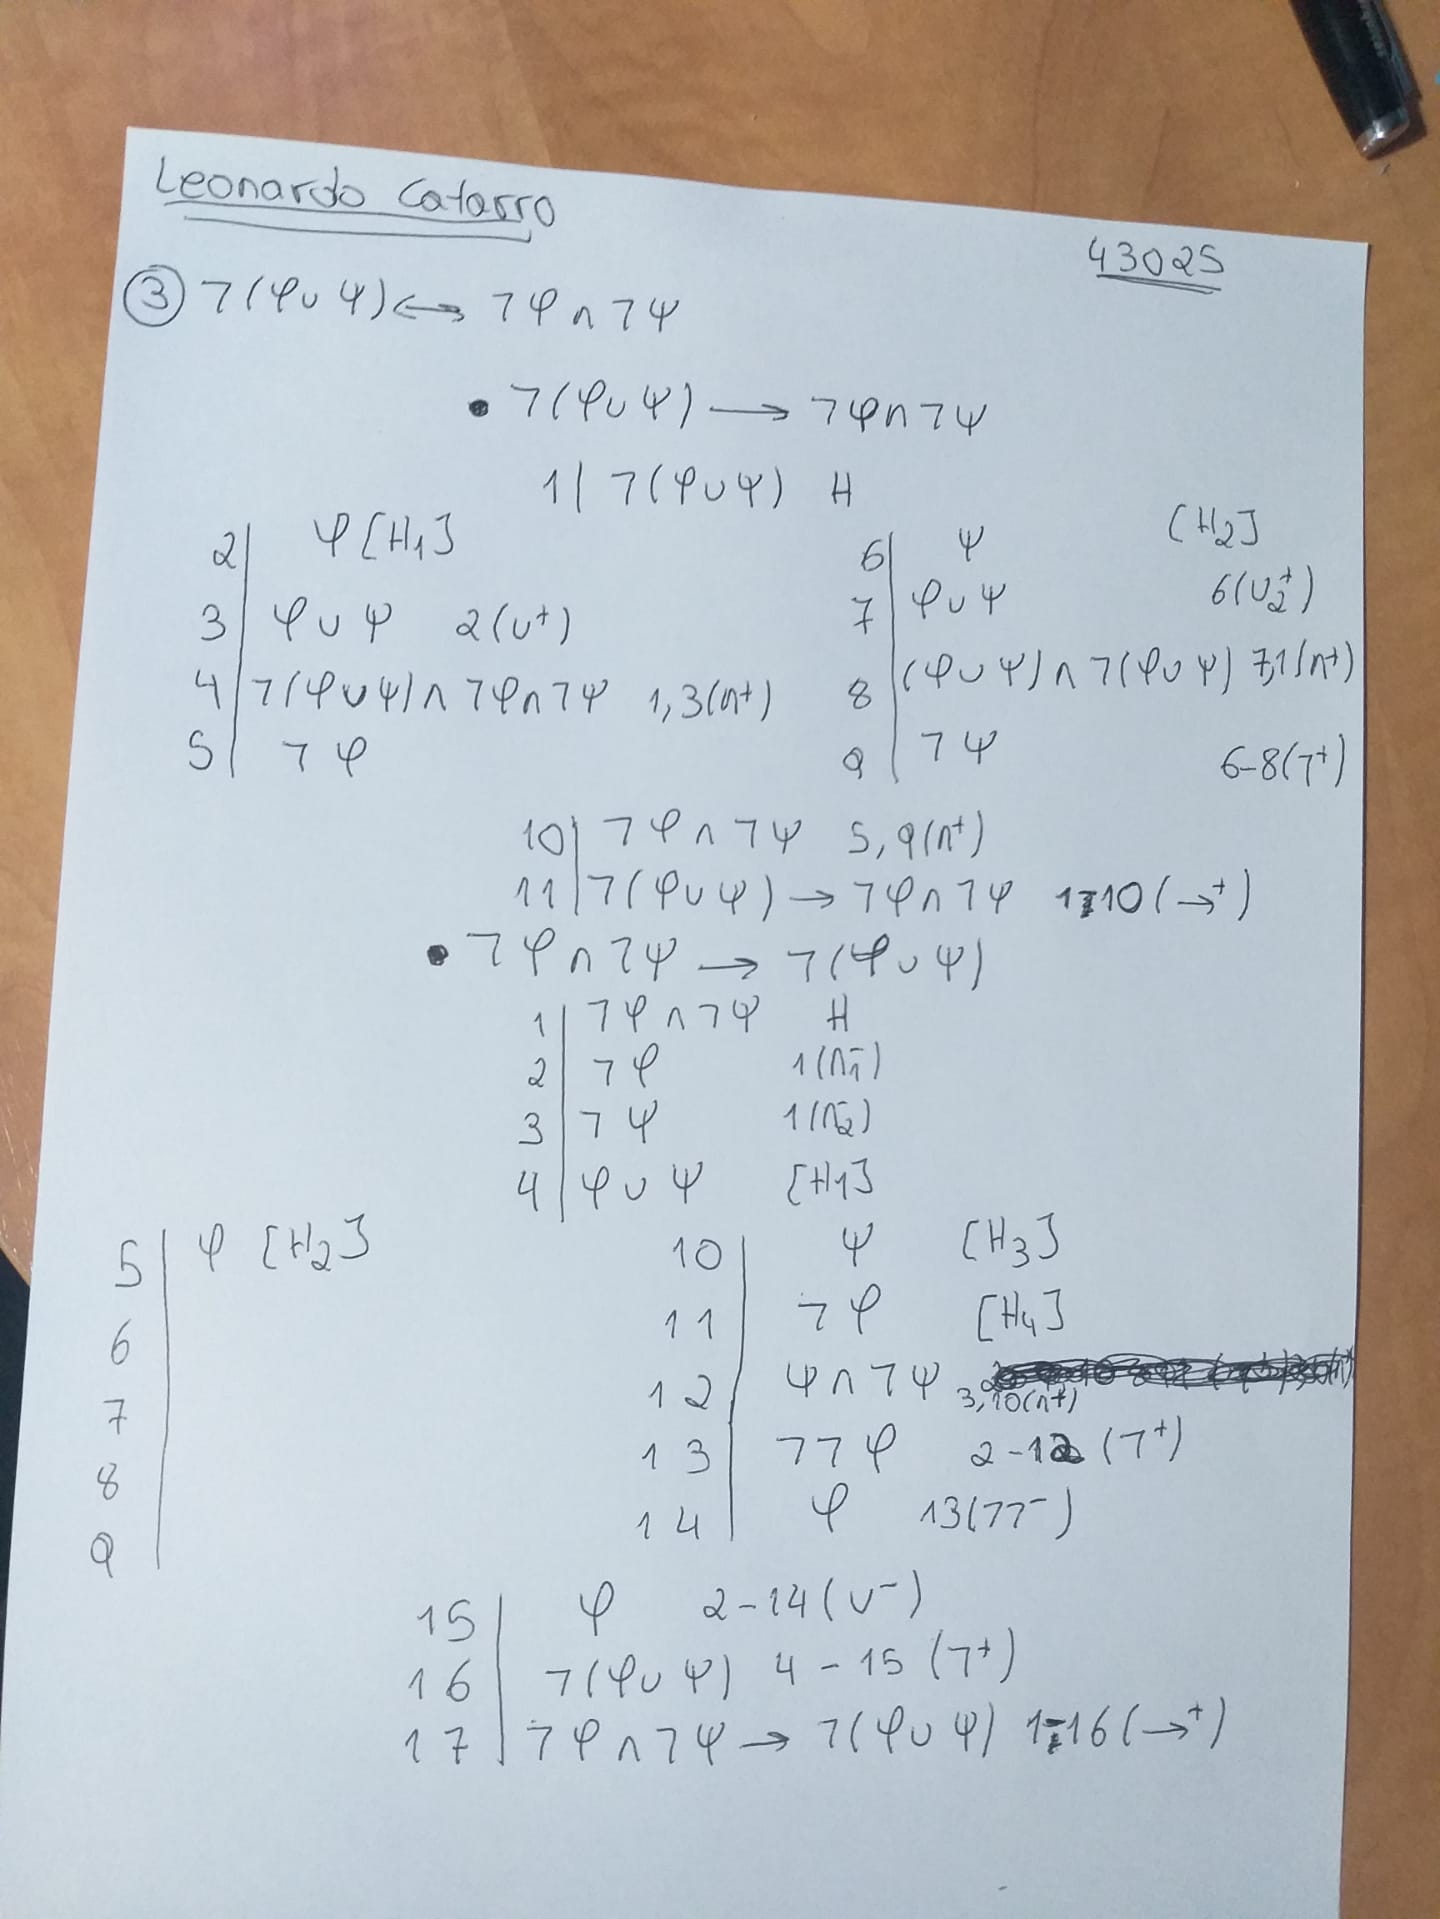 Leonardo Catarro
43025
③ ¬(φ∪ψ)↔ ¬φ∩¬ψ
• ¬(φ∪ψ) → ¬φ∩¬ψ
1| ¬(φ∪ψ) H
2| φ [H₁]
3| φ∪ψ 2(∪⁺)
4| ¬(φ∪ψ)∩¬φ∩¬ψ 1,3(∩⁺)
5| ¬φ
6| ψ [H₂]
7| φ∪ψ 6(∪₂⁺)
8| (φ∪ψ)∩¬(φ∪ψ) 7,1(∩⁺)
9| ¬ψ 6-8(¬⁺)
10| ¬φ∩¬ψ 5,9(∩⁺)
11| ¬(φ∪ψ) → ¬φ∩¬ψ 1-10(→⁺)
• ¬φ∩¬ψ → ¬(φ∪ψ)
1| ¬φ∩¬ψ H
2| ¬φ 1(∩₁⁻)
3| ¬ψ 1(∩₂⁻)
4| φ∪ψ [H₁]
5| φ [H₂]
6|
7|
8|
9|
10| ψ [H₃]
11| ¬φ [H₄]
12| ψ∩¬ψ 3,10(∩⁺)
13| ¬¬φ 2-12(¬⁺)
14| φ 13(¬¬⁻)
15| φ 2-14(∪⁻)
16| ¬(φ∪ψ) 4-15(¬⁺)
17| ¬φ∩¬ψ → ¬(φ∪ψ) 1-16(→⁺)